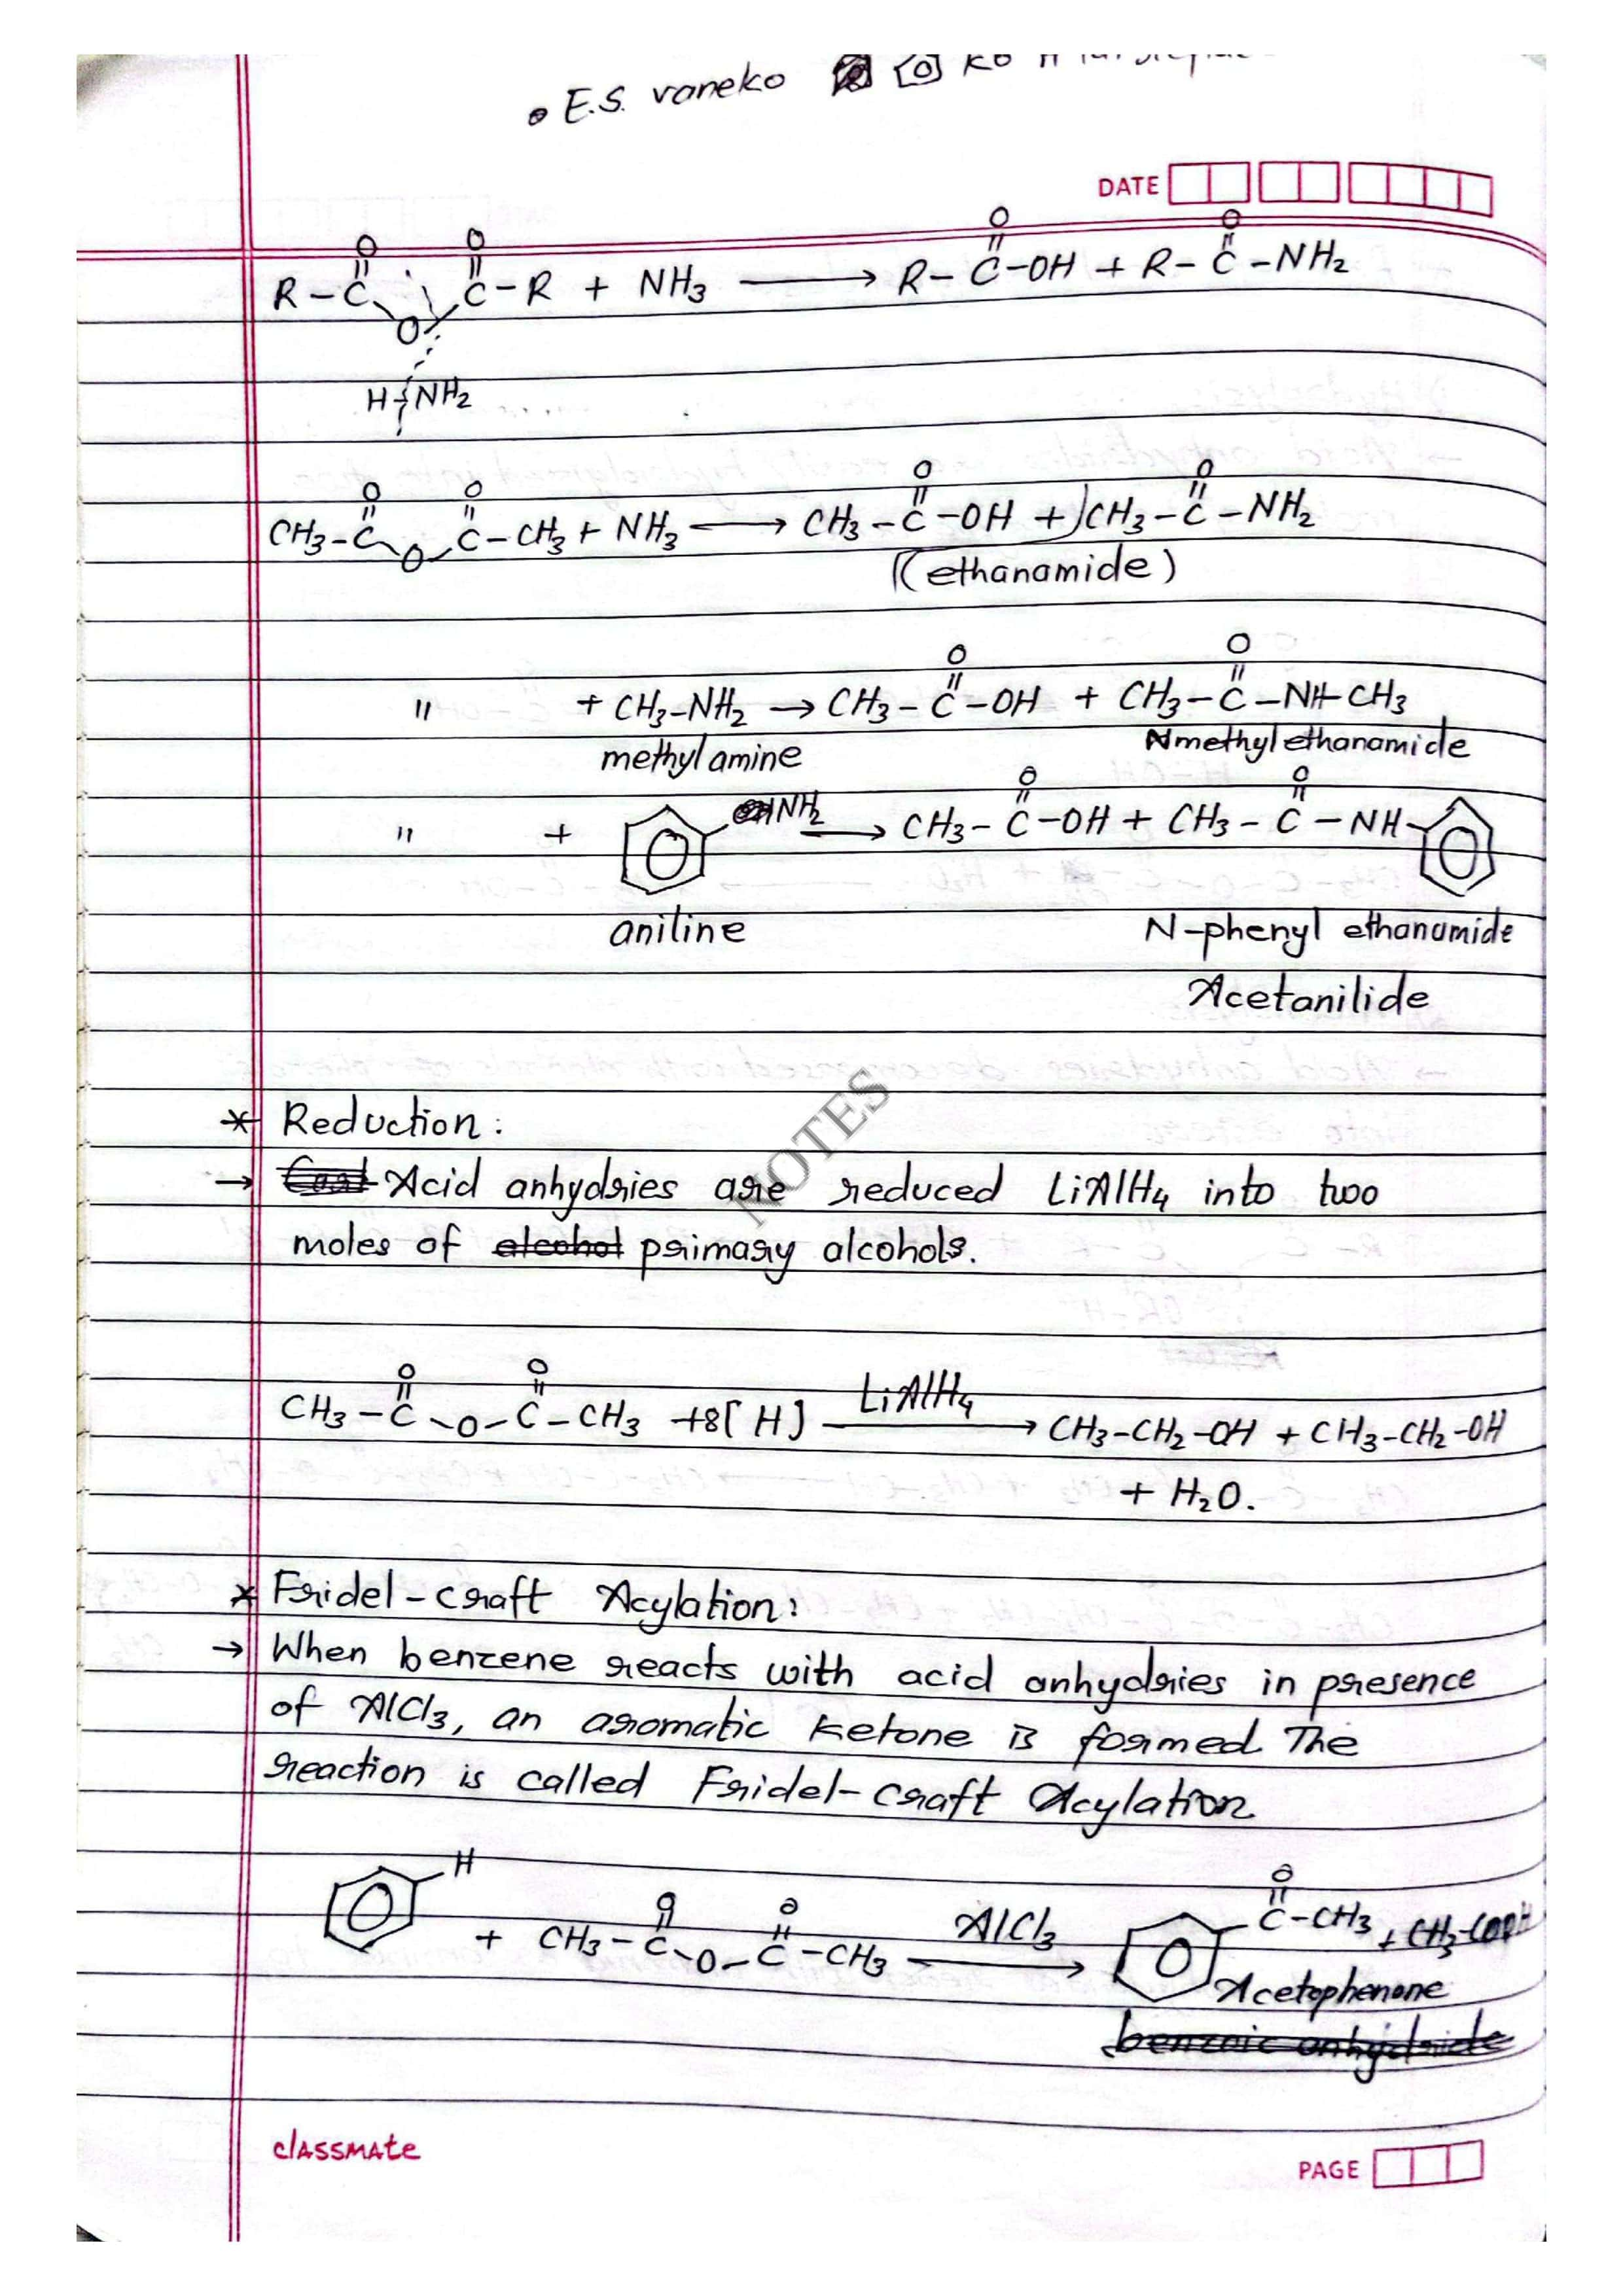 • E.S. vaneko
DATE
R-C(=O)-O-C(=O)-R + NH₃ ⟶ R-C(=O)-OH + R-C(=O)-NH₂
H NH₂
CH₃-C(=O)-O-C(=O)-CH₃ + NH₃ ⟶ CH₃-C(=O)-OH + CH₃-C(=O)-NH₂
(ethanamide)
" + CH₃-NH₂ → CH₃-C(=O)-OH + CH₃-C(=O)-NH-CH₃
methylamine Nmethylethanamide
" + NH₂ ⟶ CH₃-C(=O)-OH + CH₃-C(=O)-NH-
aniline N-phenyl ethanamide
Acetanilide
NOTES
* Reduction:
→ Acid anhydries are reduced LiAlH₄ into two
moles of alcohol primary alcohols.
CH₃-C(=O)-O-C(=O)-CH₃ +8[H] —LiAlH₄→ CH₃-CH₂-OH + CH₃-CH₂-OH
+ H₂O.
* Fridel-craft Acylation:
→ When benzene reacts with acid anhydries in presence
of AlCl₃, an aromatic ketone is formed The
reaction is called Fridel-craft Acylation
H
+ CH₃-C(=O)-O-C(=O)-CH₃ —AlCl₃→ C(=O)-CH₃ + CH₃-COOH
Acetophenone
benzoic anhydride
classmate
PAGE